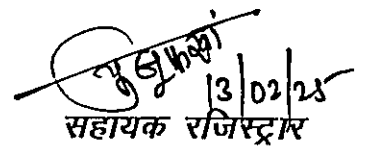 13/02/25
सहायक रजिस्ट्रार